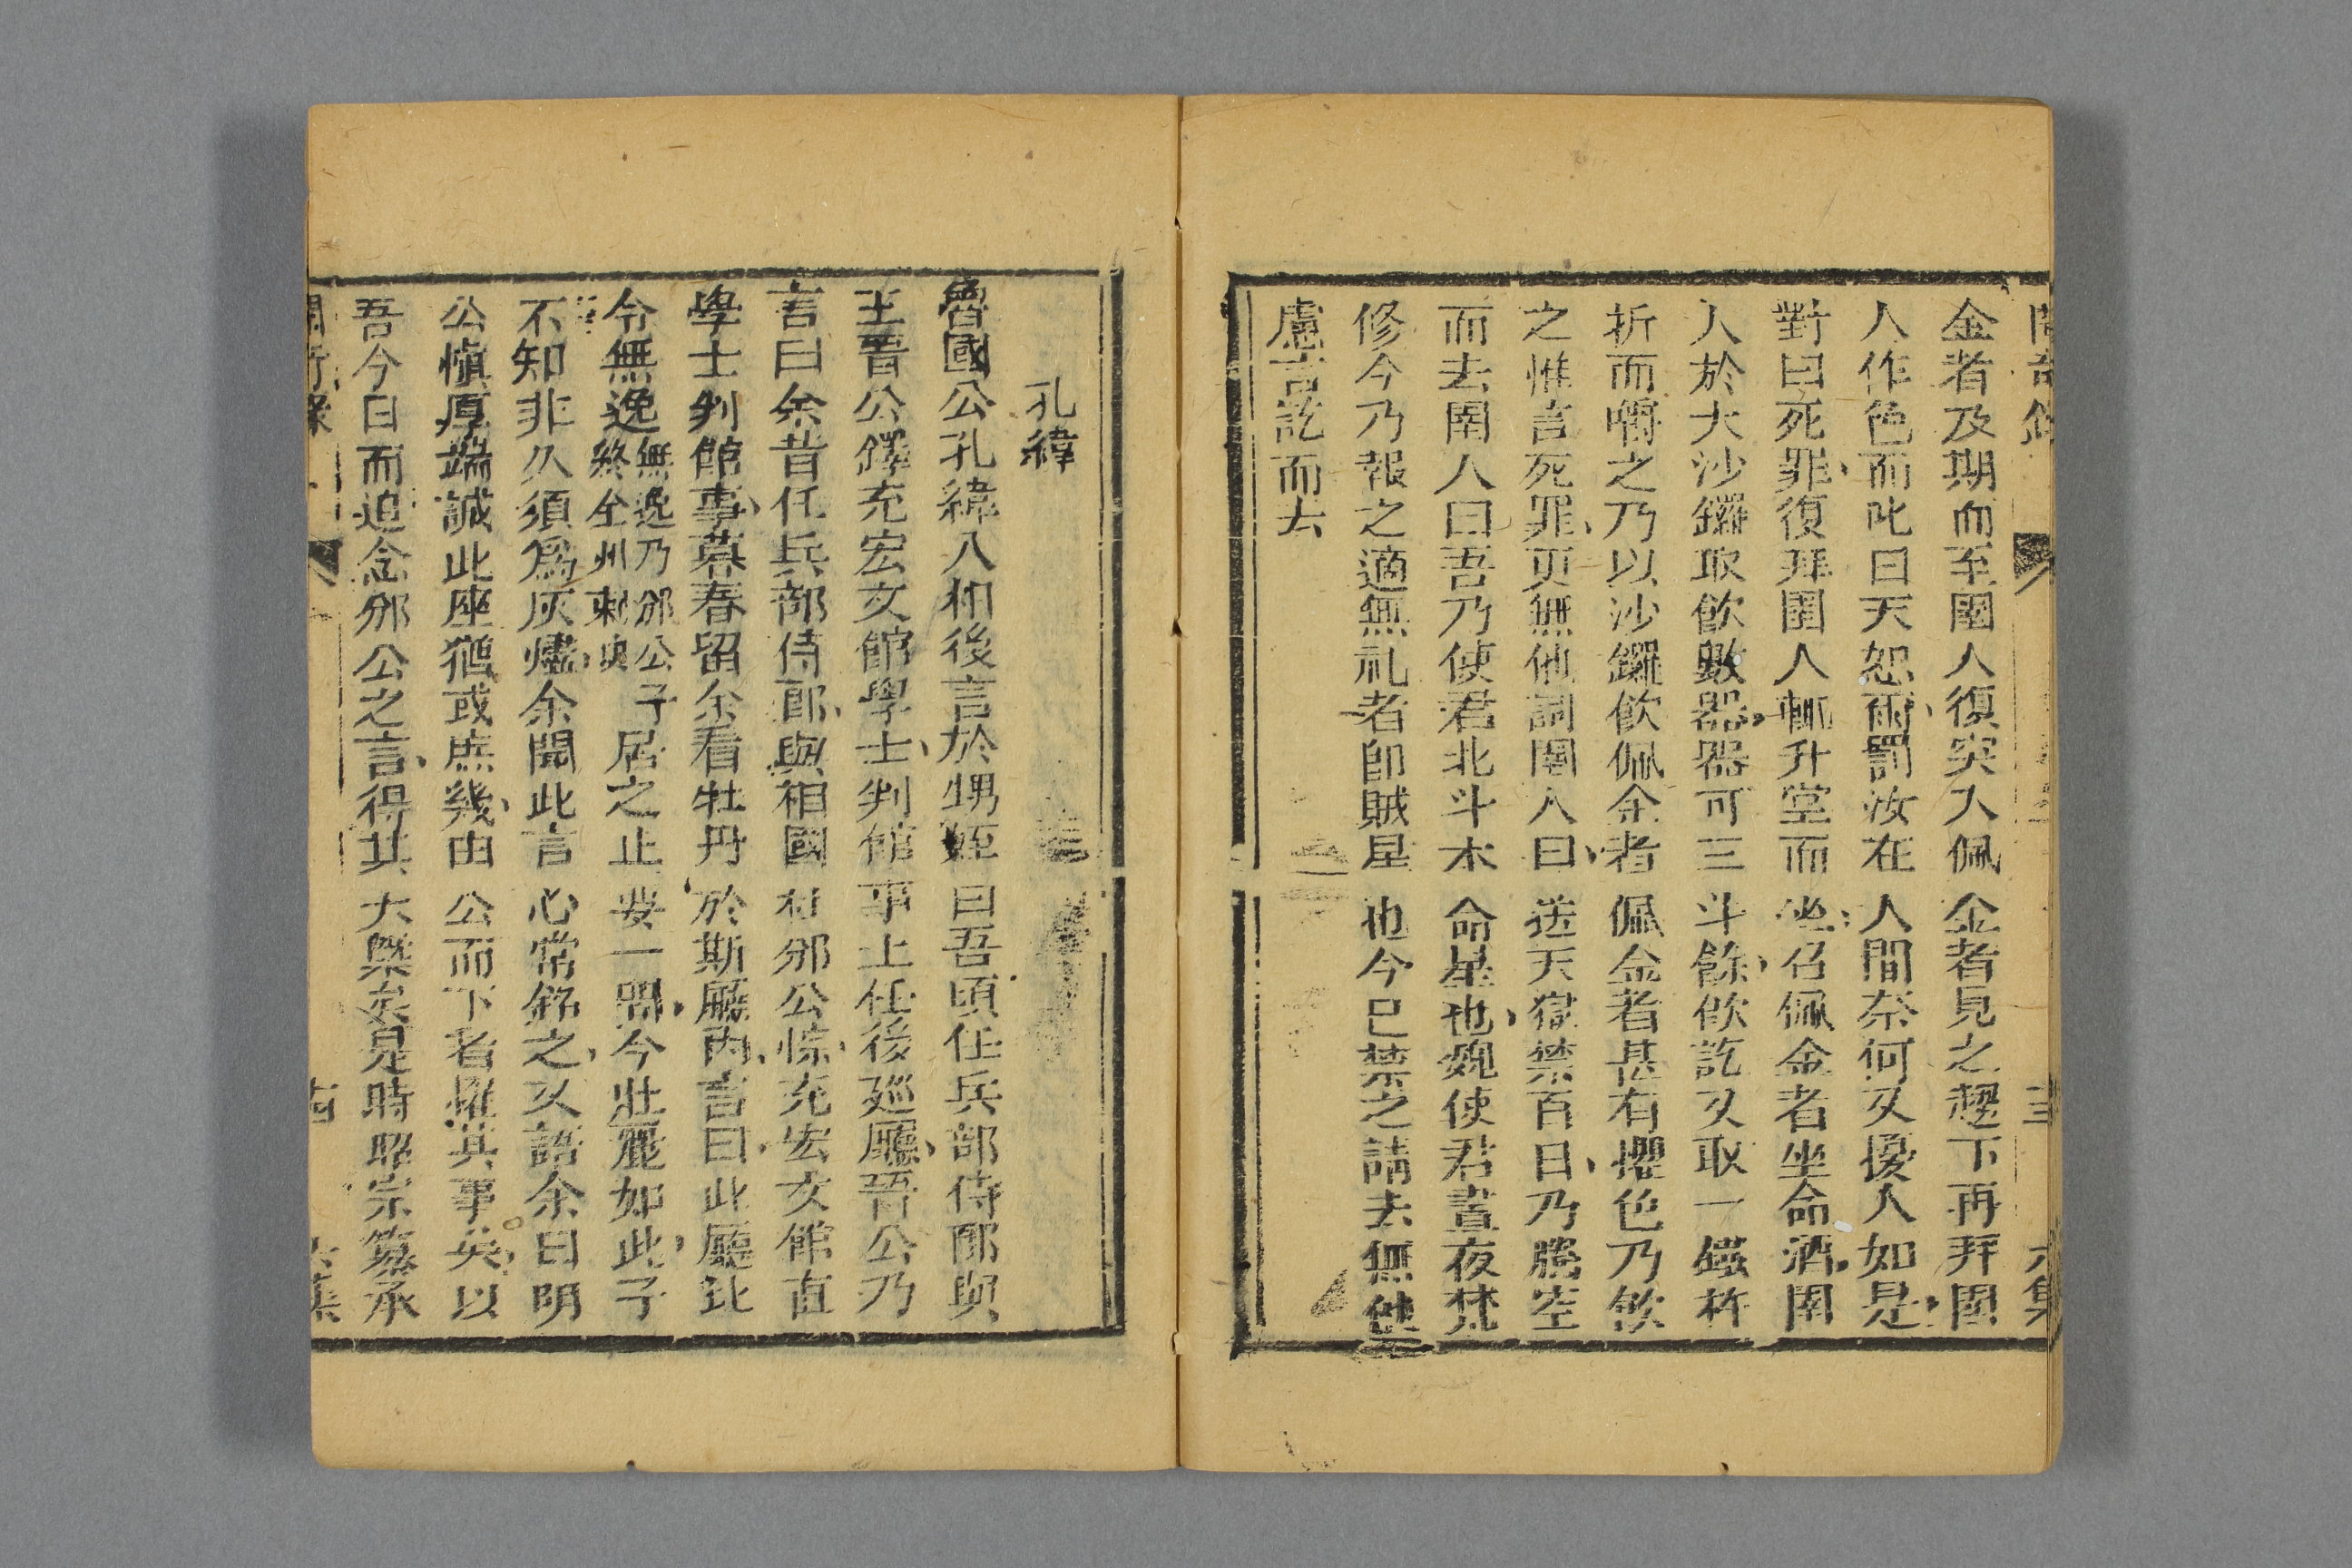 金者及期而至圉人復突入佩金者見之趨下再拜圉
人作色而叱曰天恕爾罰汝在人間奈何又擾人如是
對曰死罪復拜圉人輒升堂而坐召佩金者坐命酒圉
人於大沙鑼取飲數器器可三斗餘飲訖又取一鐵杵
折而嚼之乃以沙鑼飲佩金者佩金者甚有懼色乃飲
之惟言死罪更無他詞圉人曰送天獄禁百日乃騰空
而去圉人曰吾乃使君北斗本命星也魏使君晝夜焚
修今乃報之適無礼者即賊星也今已禁之請去無
慮言訖而去
孔緯
魯國公孔緯入相後言於甥姪曰吾頃任兵部侍郎與
王晉公鐸充宏文館學士判館事上任後廵廳晉公乃
言曰余昔任兵部侍郎與相國杜邠公悰充宏文館直
學士判館事暮春留余看牡丹於斯廳內言曰此廳比
令無逸無逸乃邠公子終全州刺史居之止要一間今壯麗如此子
不知非久須爲灰燼余聞此言心常銘之又語余曰明
公愼厚端誠此座猶或庶幾由公而下者罹其事矣以
吾今日而追念邠公之言得其大槩矣是時昭宗篡承